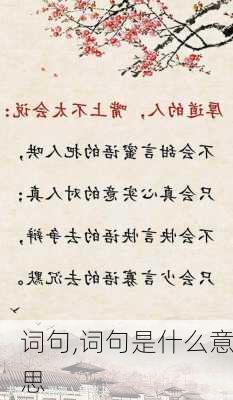 厚道的人，嘴上不太会说：
不会甜言蜜语的把人哄，
只会真心实意的对人真；
不会快言快语的去争辩，
只会少言寡语的去沉默。
词句,词句是什么意
思